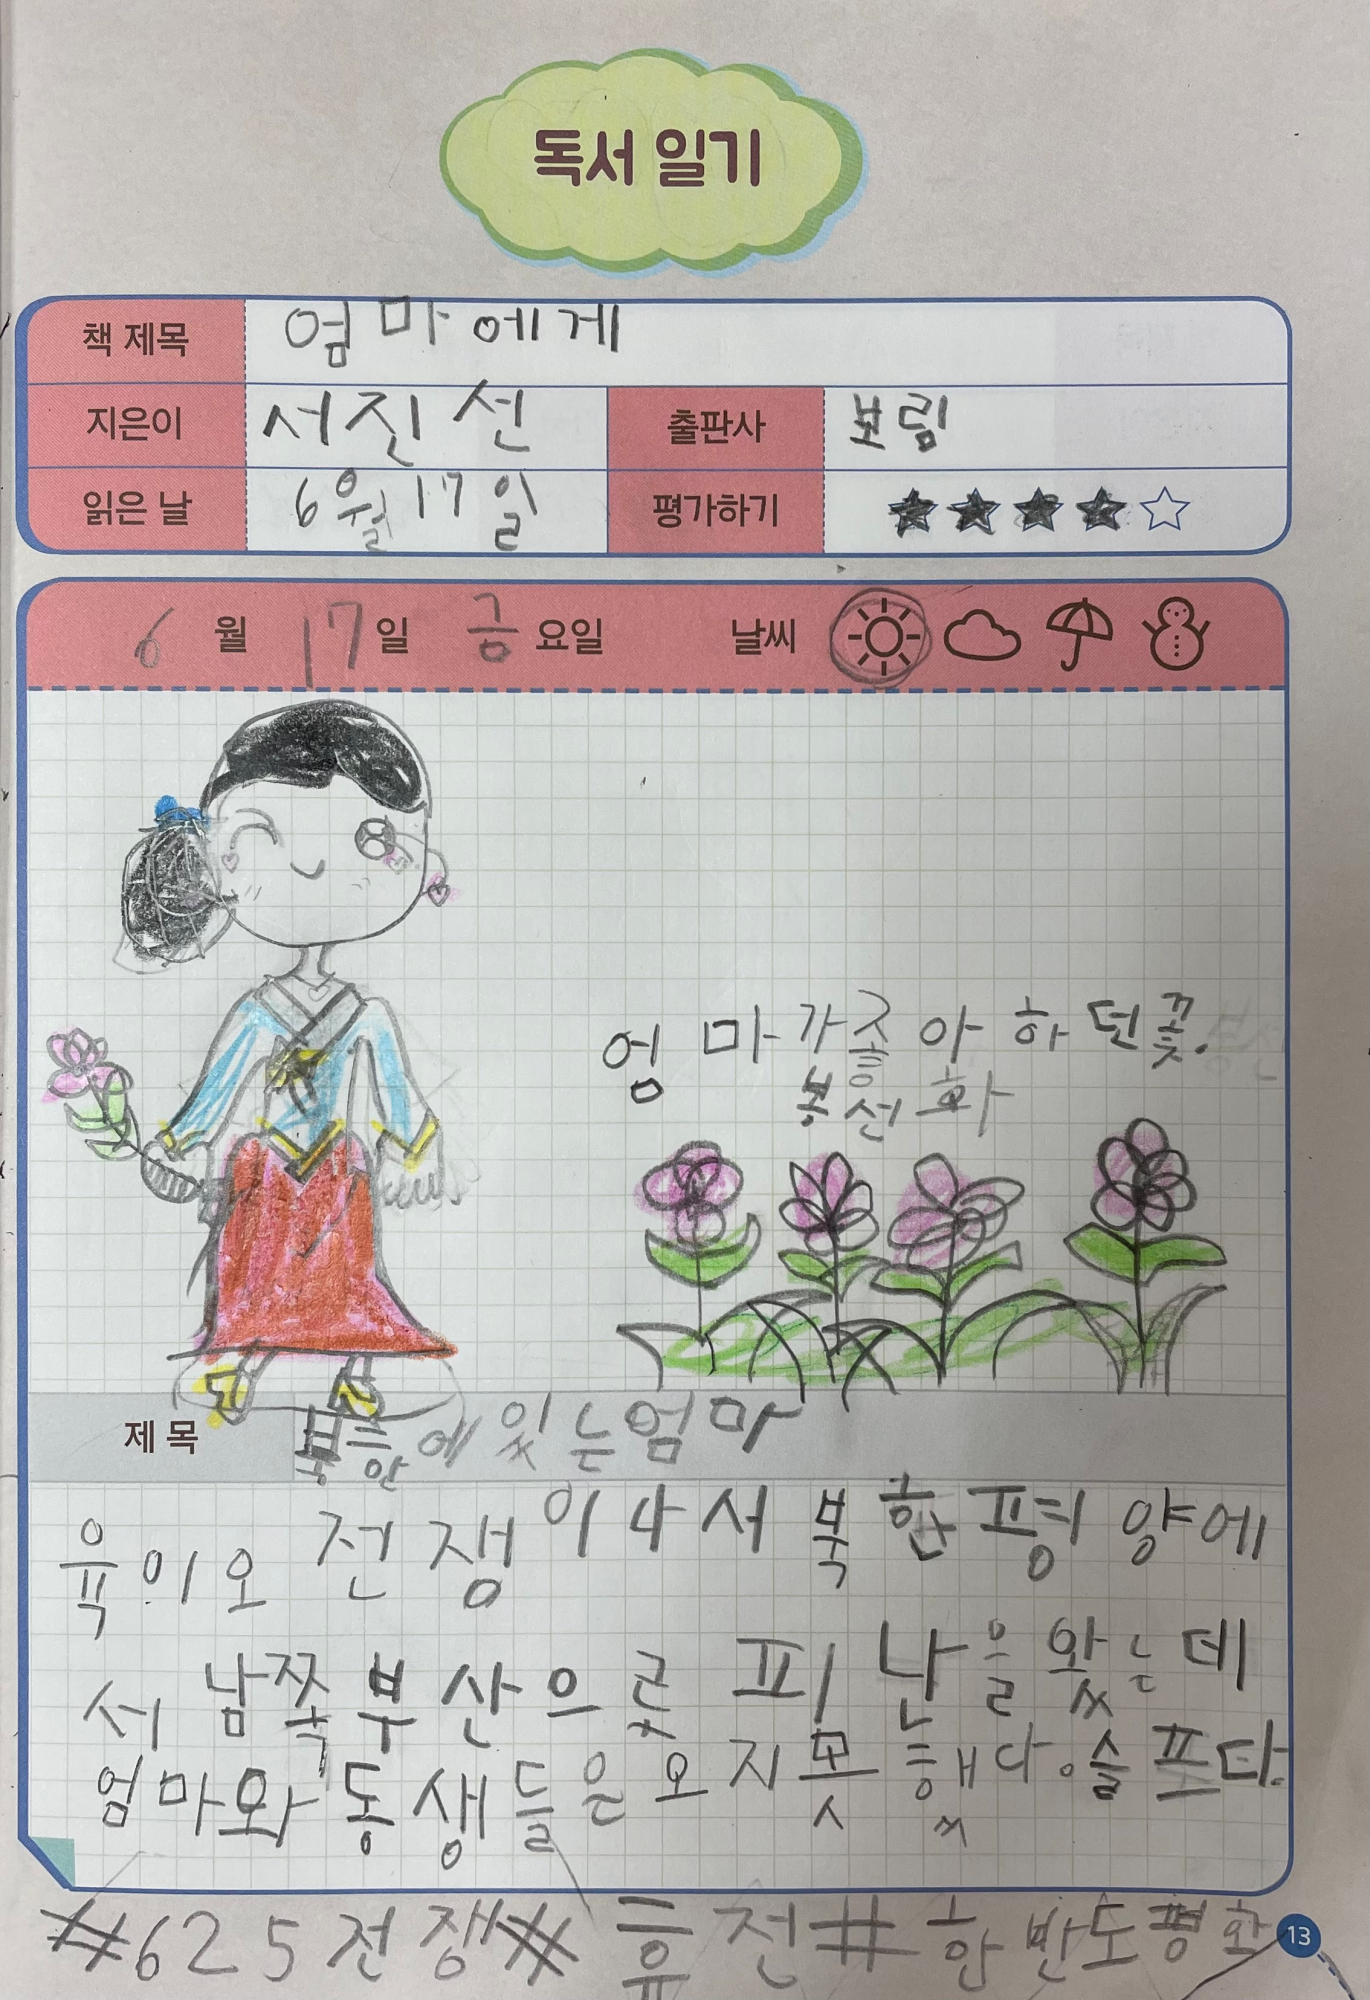 독서 일기
책 제목 엄마에게
지은이 서진선 출판사 보림
읽은 날 6월 17일 평가하기
6 월 17 일 금 요일 날씨
엄마가좋아하던꽃.
봉선화
제목 북한에있는엄마
육이오 전쟁이나서 북한평양에
서 남쪽부산으롯 피난을왔는데
엄마와동생들은오지못했다. 슬프다.
#625전쟁#휴전#한반도평화
13